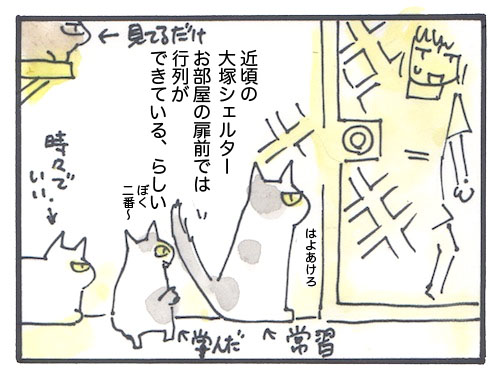 近頃の
大塚シェルター
お部屋の扉前では
行列が
できている、らしい
←見てるだけ
はよあけろ
ぼく
二番〜
時々で
いい.
常習
学んだ